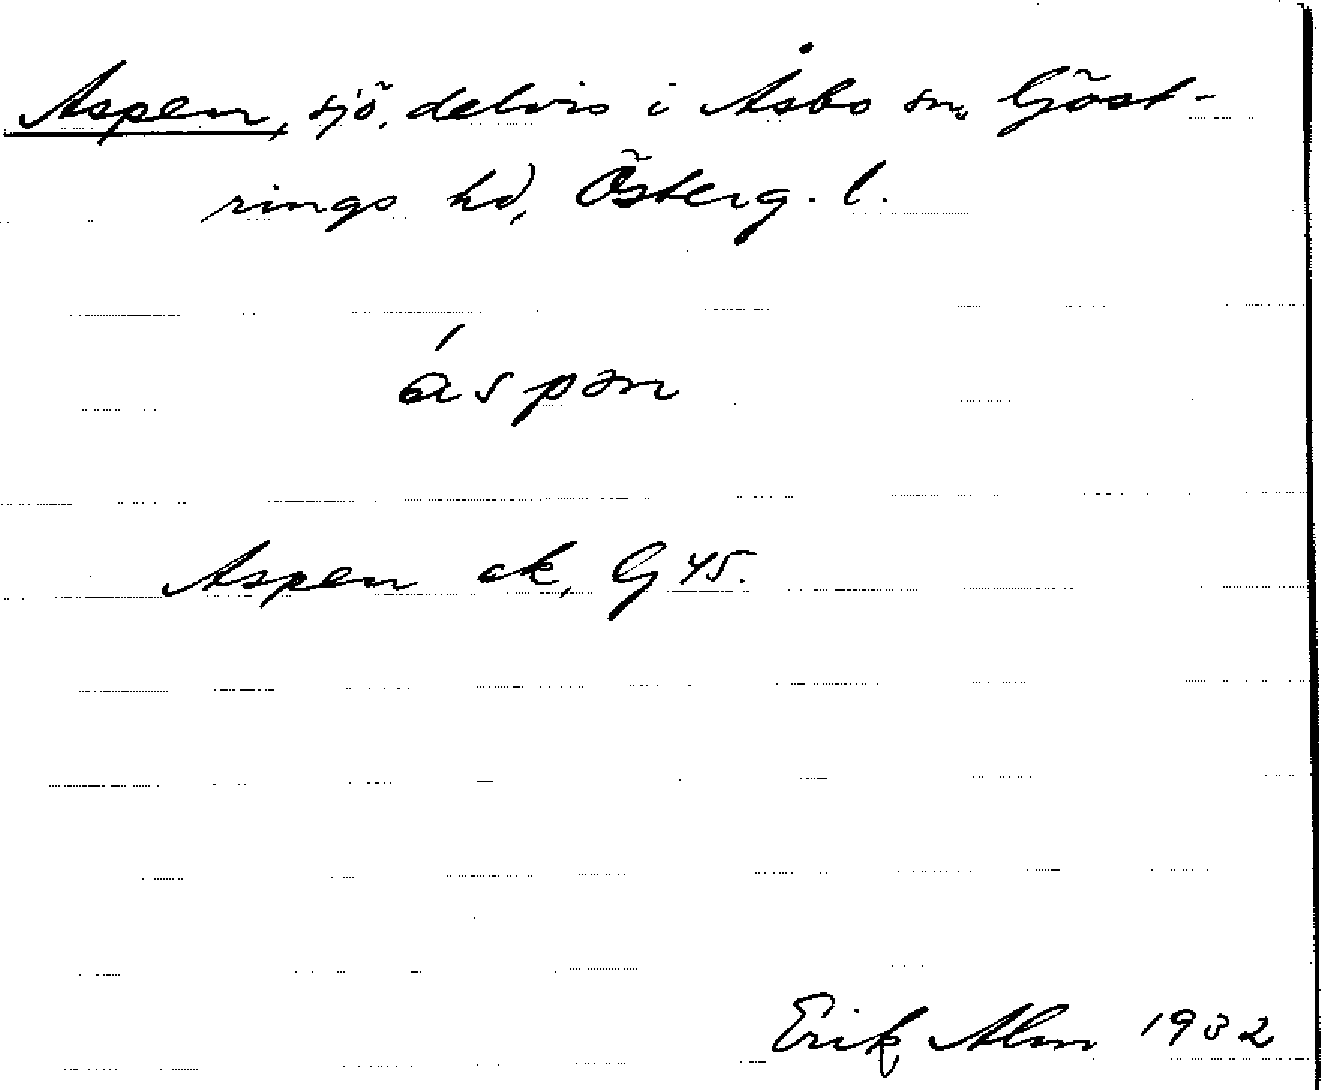 Aspen, sjö, delvis i Åsbo sn, Göst-
rings hd, Österg. l.
áspən
Aspen ek, G 45.
Erik Alm 1932